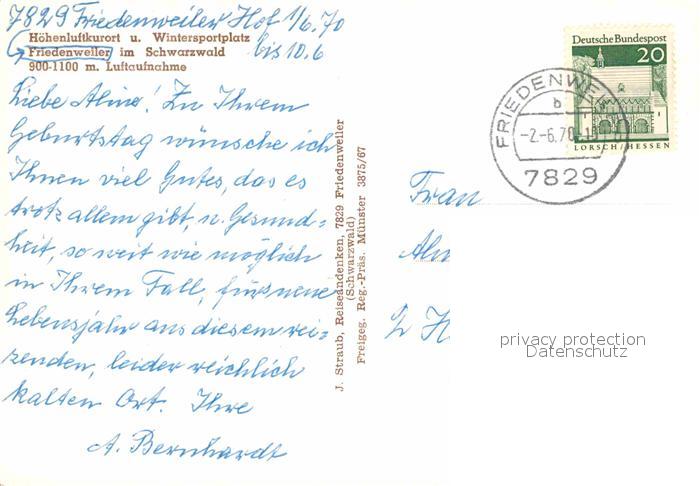 7829 Friedenweiler Hof 1/6.70
bis 10.6
Höhenluftkurort u. Wintersportplatz
Friedenweiler im Schwarzwald
900-1100 m. Luftaufnahme
Liebe Aline! Zu Ihrem
Geburtstag wünsche ich
Ihnen viel Gutes, das es
trotz allem gibt, u. Gesund=
heit, so weit wie möglich
in Ihrem Fall, fürs neue
Lebensjahr aus diesem rei=
zenden, leider reichlich
kalten Ort. Ihre
A. Bernhardt
J. Straub, Reiseandenken, 7829 Friedenweiler
(Schwarzwald)
Freigeg. Reg.-Präs. Münster 3875/67
Deutsche Bundespost
20
LORSCH/HESSEN
FRIEDENWE
b
-2.-6.70.-1
7829
Frau
Aln
privacy protection
Datenschutz